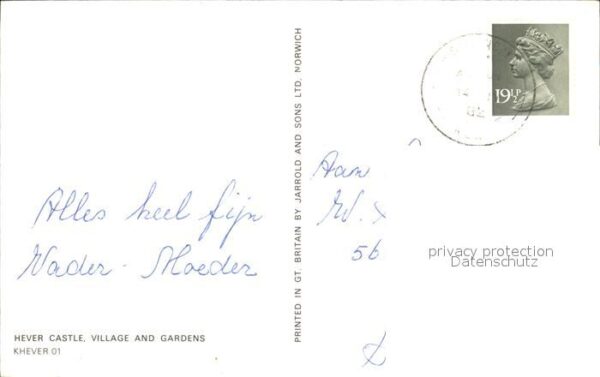 Alles heel fijn
Vader - Moeder
HEVER CASTLE, VILLAGE AND GARDENS
KHEVER 01
PRINTED IN GT. BRITAIN BY JARROLD AND SONS LTD. NORWICH
19½P
Aan
W.
56
privacy protection
Datenschutz